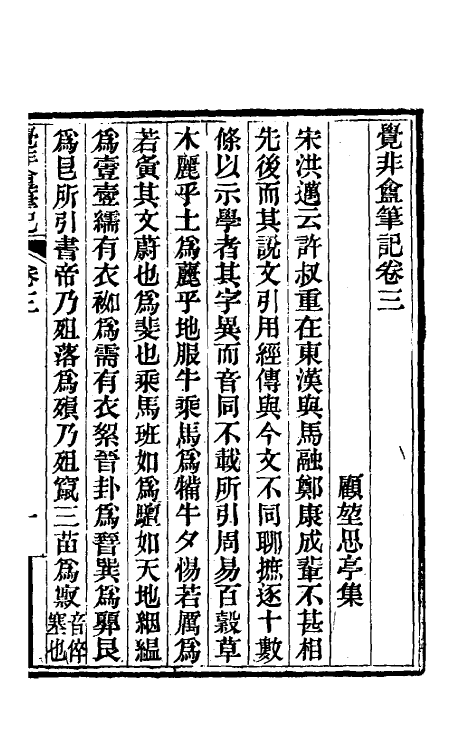 覺非盦筆記卷三
顧堃思亭集
宋洪邁云許叔重在東漢與馬融鄭康成輩不甚相
先後而其說文引用經傳與今文不同聊摭逐十數
條以示學者其字異而音同不載所引周易百穀草
木麗乎土為䕻乎地服牛乘馬為犕牛夕惕若厲為
若夤其文蔚也為斐也乘馬班如為驙如天地絪縕
為壹壹繻有衣袽為需有衣絮晉卦為㬜巽為顨艮
為㫐所引書帝乃殂落為殰乃殂竄三苗為㝮音倅塞也
覺非盦筆記
卷三
一